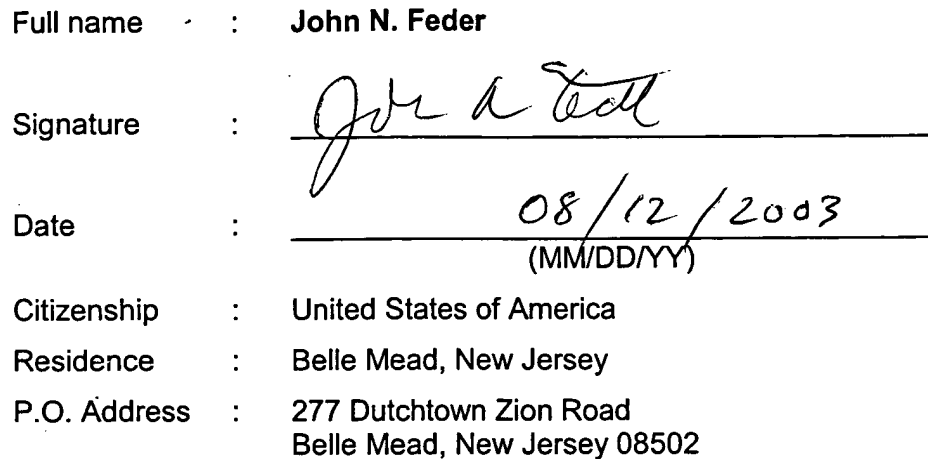 Full name : John N. Feder
Signature :
Date : 08/12/2003
(MM/DD/YY)
Citizenship : United States of America
Residence : Belle Mead, New Jersey
P.O. Address : 277 Dutchtown Zion Road
Belle Mead, New Jersey 08502